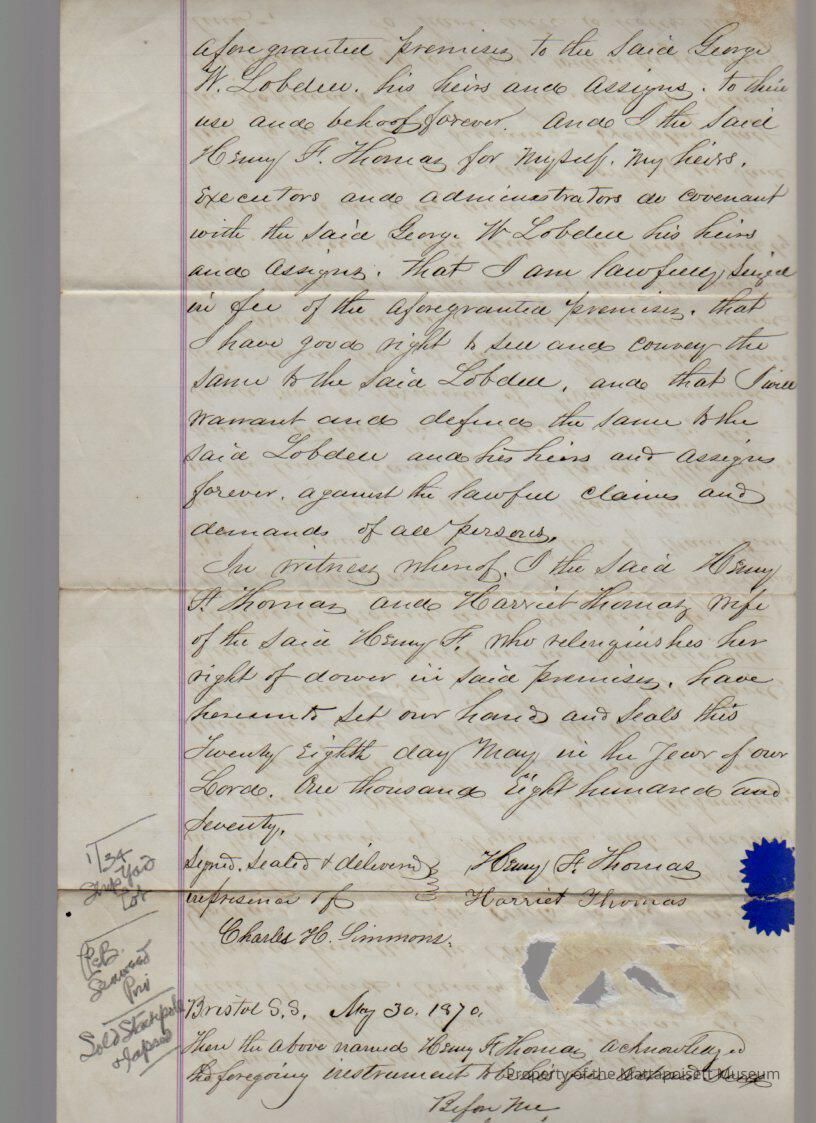 aforegranted premises to the said George
W. Lobdell. his heirs and assigns. to their
use and behoof forever. And I the said
Henry F. Thomas for myself. my heirs.
Executors and administrators do covenant
with the said George W Lobdell his heirs
and assigns. that I am lawfully Seized
in fee of the aforegranted premises. that
I have good right to sell and convey the
same to the said Lobdell. and that I will
warrant and defend the same to the
said Lobdell and his heirs and assigns
forever. against the lawful claims and
demands of all persons.
In witness whereof. I the said Henry
F. Thomas and Harriet Thomas wife
of the said Henry F. who relinquishes her
right of dower in said premises. have
hereunto set our hands and seals this
Twenty Eighth day May in the Year of our
Lord. One thousand Eight hundred and
Seventy.
Signed. sealed & delivered
in presence of
Henry F. Thomas
Harriet Thomas
Charles H. Simmons.
1/34
Ship Yard
Lot
Seaweed
Priv
Sold Stackpole
Bristol S.S. May 30. 1870.
Then the above named Henry F. Thomas acknowledged
the foregoing instrument to be his
Before me
Property of the Mattapoisett Museum